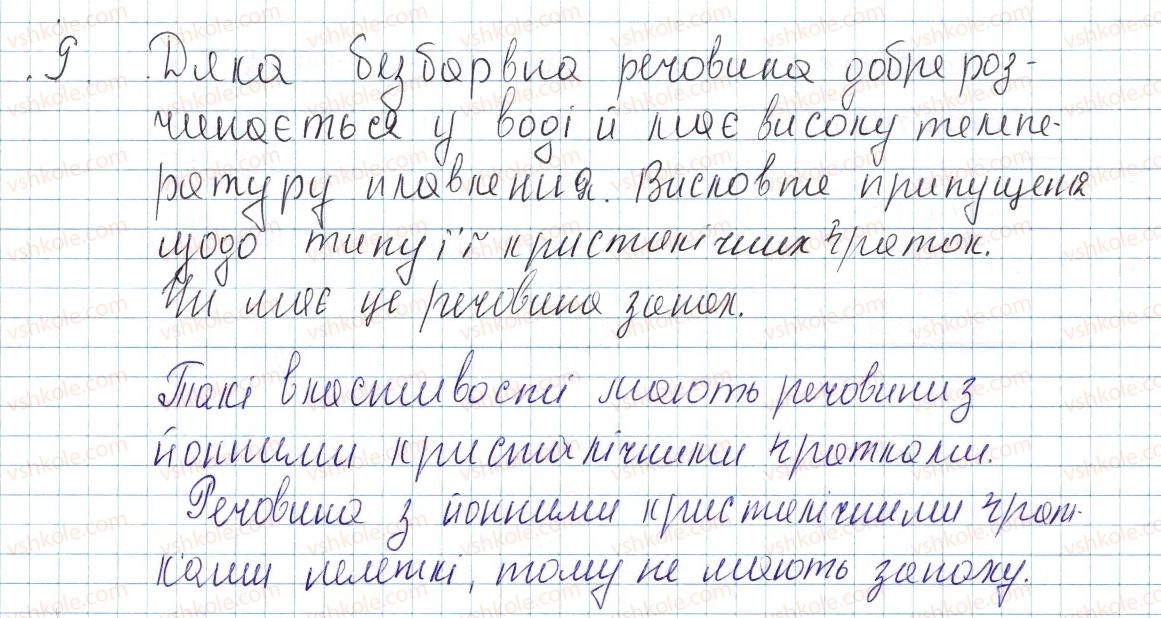 9. Деяка безбарвна речовина добре роз-
чиняється у воді й має високу темпе-
ратуру плавлення. Висловте припущеня
щодо типу її кристалічних ґраток.
Чи має це речовина запах.
Такі властивості мають речовини з
йонними кристалічними ґратками.
Речовина з йонними кристалічними ґрат-
ками нелеткі, тому не мають запаху.